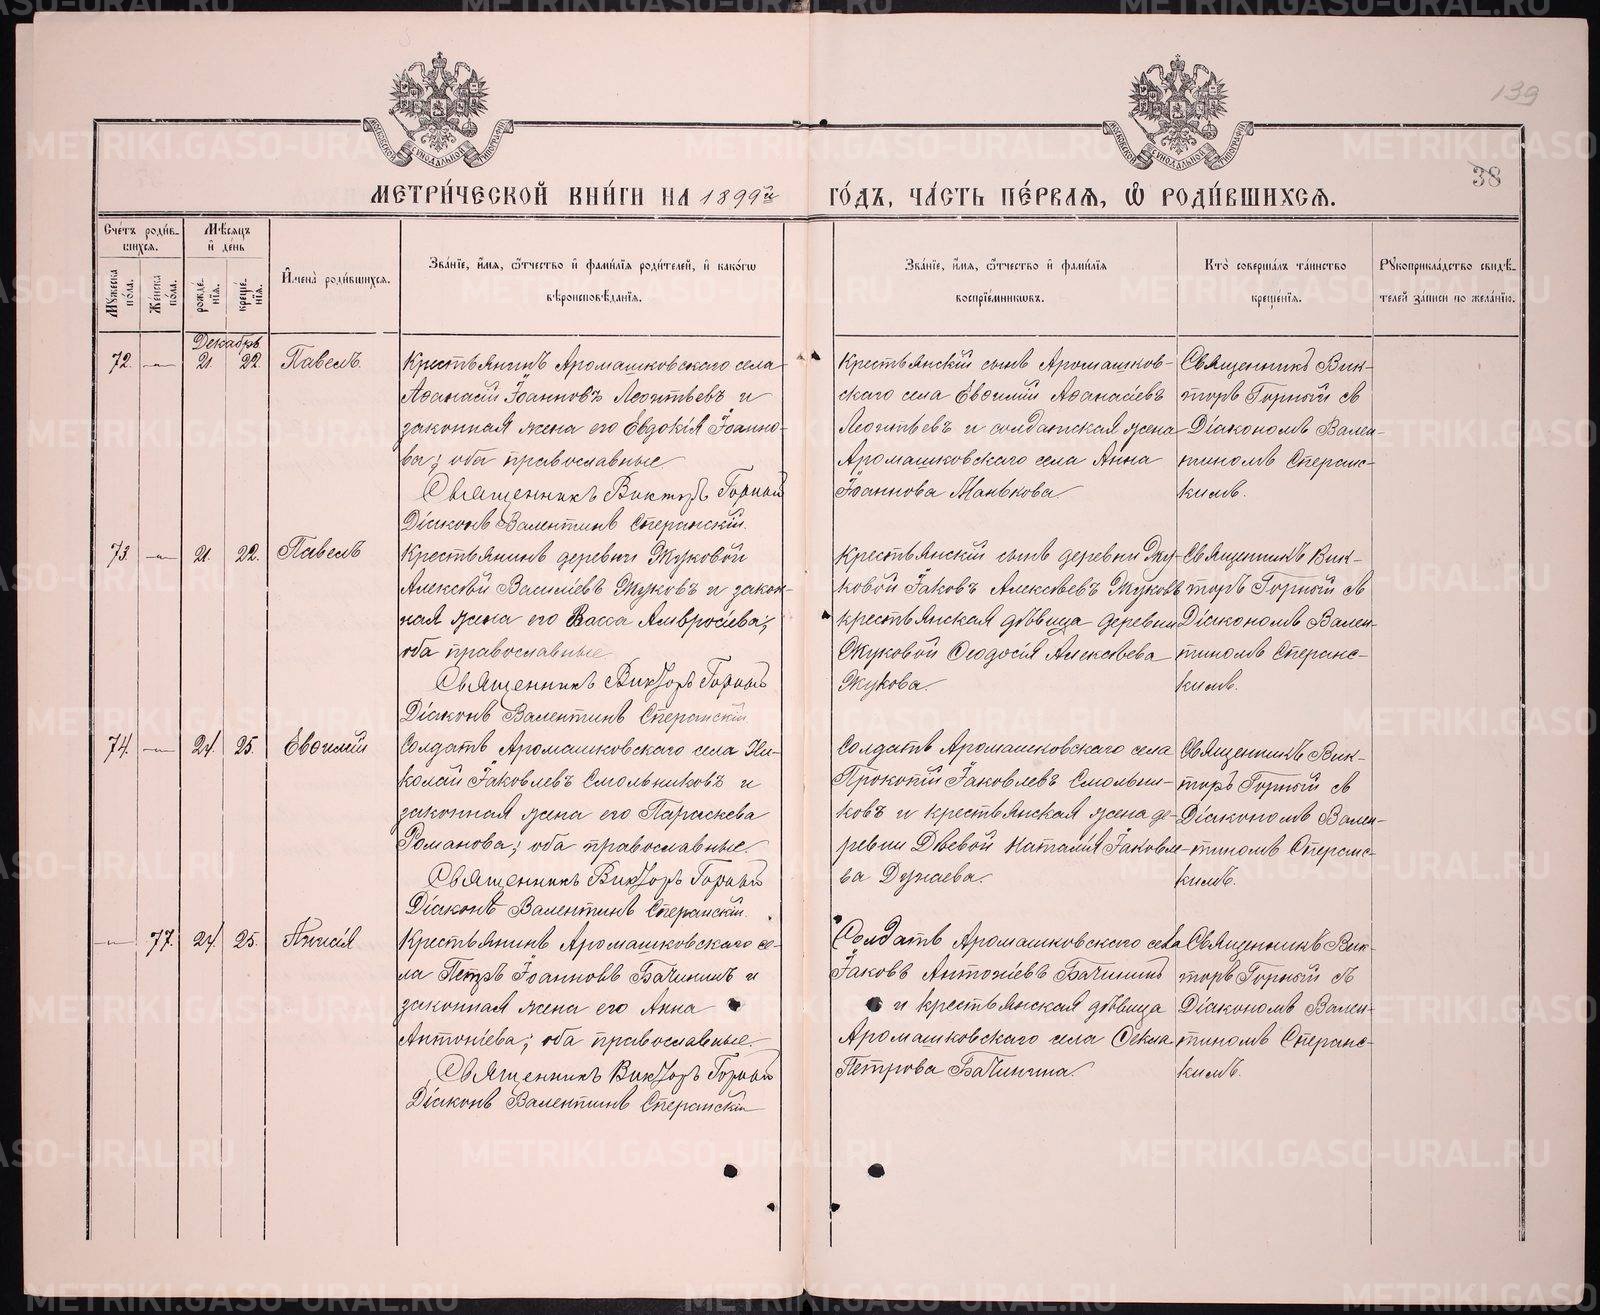 139
38
МЕТРИ́ЧЕСКОЙ КНИ́ГИ НА 1899й ГО́ДЪ, ЧА́СТЬ ПЕ́РВАЯ, Ѽ РОДИ́ВШИХСЯ.
Сче́тъ роди́в-
шихся.
Му́жеска
по́ла.
Же́нска
по́ла.
Мѣсяцъ
и҆ де́нь
рожде́-
нїя.
креще́-
нїя.
И҆мена̀ роди́вшихся.
Зва́нїе, и҆́мя, ѻ҆́тчество и҆ фами́лїя роди́телей, и҆ како́гѡ
вѣроисповѣ́данїя.
Зва́нїе, и҆́мя, ѻ҆́тчество и҆ фами́лїя
воспрїе́мникѡвъ.
Кто̀ соверша́лъ та́инство
креще́нїя.
Рꙋкоприкла́дство свидѣ́-
телей за́писи по жела́нїю.
Декабрь
72. — 21. 22. Павелъ.
Крестьянинъ Аромашковскаго села
Аѳанасій Іоанновъ Леонтьевъ и
законная жена его Евдокія Іоанно-
ва; оба православные
Священникъ Викторъ Горный
Діаконъ Валентинъ Сперанскій.
Крестьянскій сынъ Аромашков-
скаго села Евѳимій Аѳанасіевъ
Леонтьевъ и солдатская жена
Аромашковскаго села Анна
Іоаннова Манькова
Священникъ Вик-
торъ Горный съ
Діакономъ Вален-
тиномъ Сперанс-
кимъ.
73. — 21. 22. Павелъ
Крестьянинъ деревни Жуковой
Алексѣй Василіевъ Жуковъ и закон-
ная жена его Васса Амвросіева;
оба православные
Священникъ Викторъ Горный
Діаконъ Валентинъ Сперанскій
Крестьянскій сынъ деревни Жу-
ковой Іаковъ Алексѣевъ Жуковъ
и крестьянская дѣвица деревни
Жуковой Ѳеодосія Алексѣева
Жукова.
Священникъ Вик-
торъ Горный съ
Діакономъ Вален-
тиномъ Сперанс-
кимъ.
74. — 24 25. Евѳимій
Солдатъ Аромашковскаго села Ни-
колай Іаковлевъ Смольниковъ и
законная жена его Параскева
Романова; оба православные.
Священникъ Викторъ Горный
Діаконъ Валентинъ Сперанскій.
Солдатъ Аромашковскаго села
Прокопій Іаковлевъ Смольни-
ковъ и крестьянская жена де-
ревни Дѣевой Наталия Іаковле-
ва Дунаева.
Священникъ Вик-
торъ Горный съ
Діакономъ Вален-
тиномъ Сперанс-
кимъ.
— 77. 24 25. Анисія
Крестьянинъ Аромашковскаго се-
ла Петръ Іоанновъ Бачининъ и
законная жена его Анна
Антоніева; оба православные.
Священникъ Викторъ Горный
Діаконъ Валентинъ Сперанскій
Солдатъ Аромашковскаго села
Іаковъ Антоніевъ Бачининъ
и крестьянская дѣвица
Аромашковскаго села Ѳекла
Петрова Бачинина
Священникъ Вик-
торъ Горный съ
Діакономъ Вален-
тиномъ Сперанс-
кимъ.
METRIKI.GASO-URAL.RU